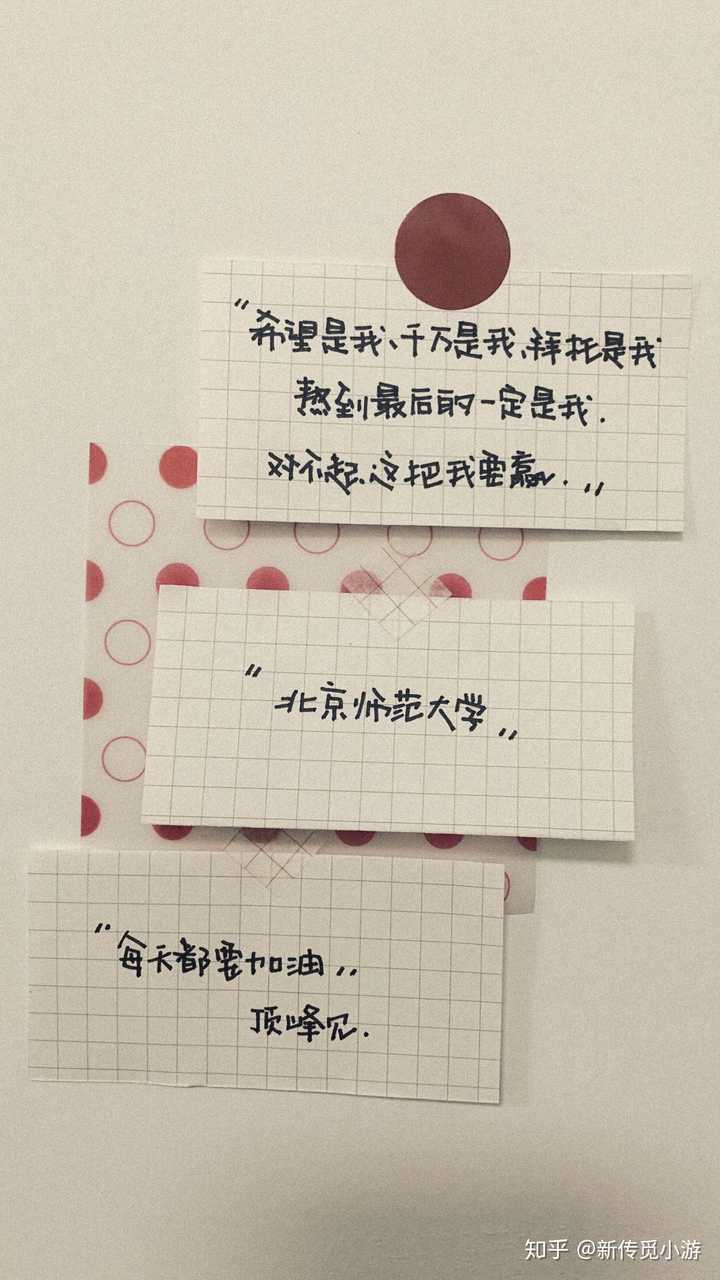 “希望是我、千万是我、拜托是我
熬到最后的一定是我.
对不起、这把我要赢.”
“北京师范大学”
“每天都要加油”
顶峰见.
知乎 @新传觅小游